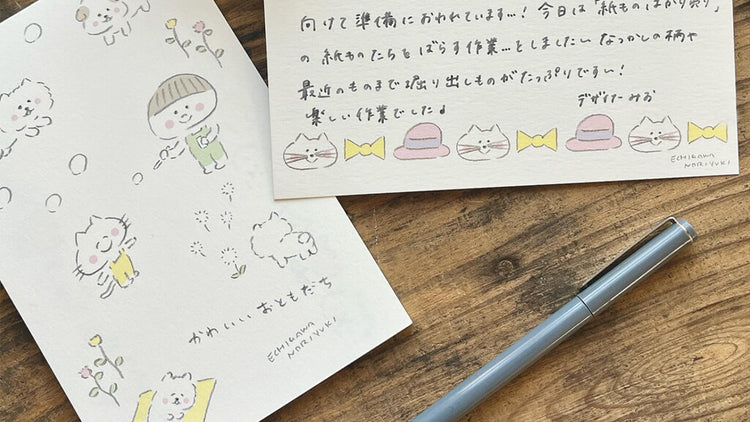 向けて準備におわれています…!今日は「紙ものばかり売り」
の紙ものたちをばらす作業…としました!なつかしの柄や
最近のものまで掘り出しものがたっぷりです…!
楽しい作業でした♩
デザイナー みお
ECHIGAWA
NORIYUKI
かわいいおともだち
ECHIGAWA
NORIYUKI